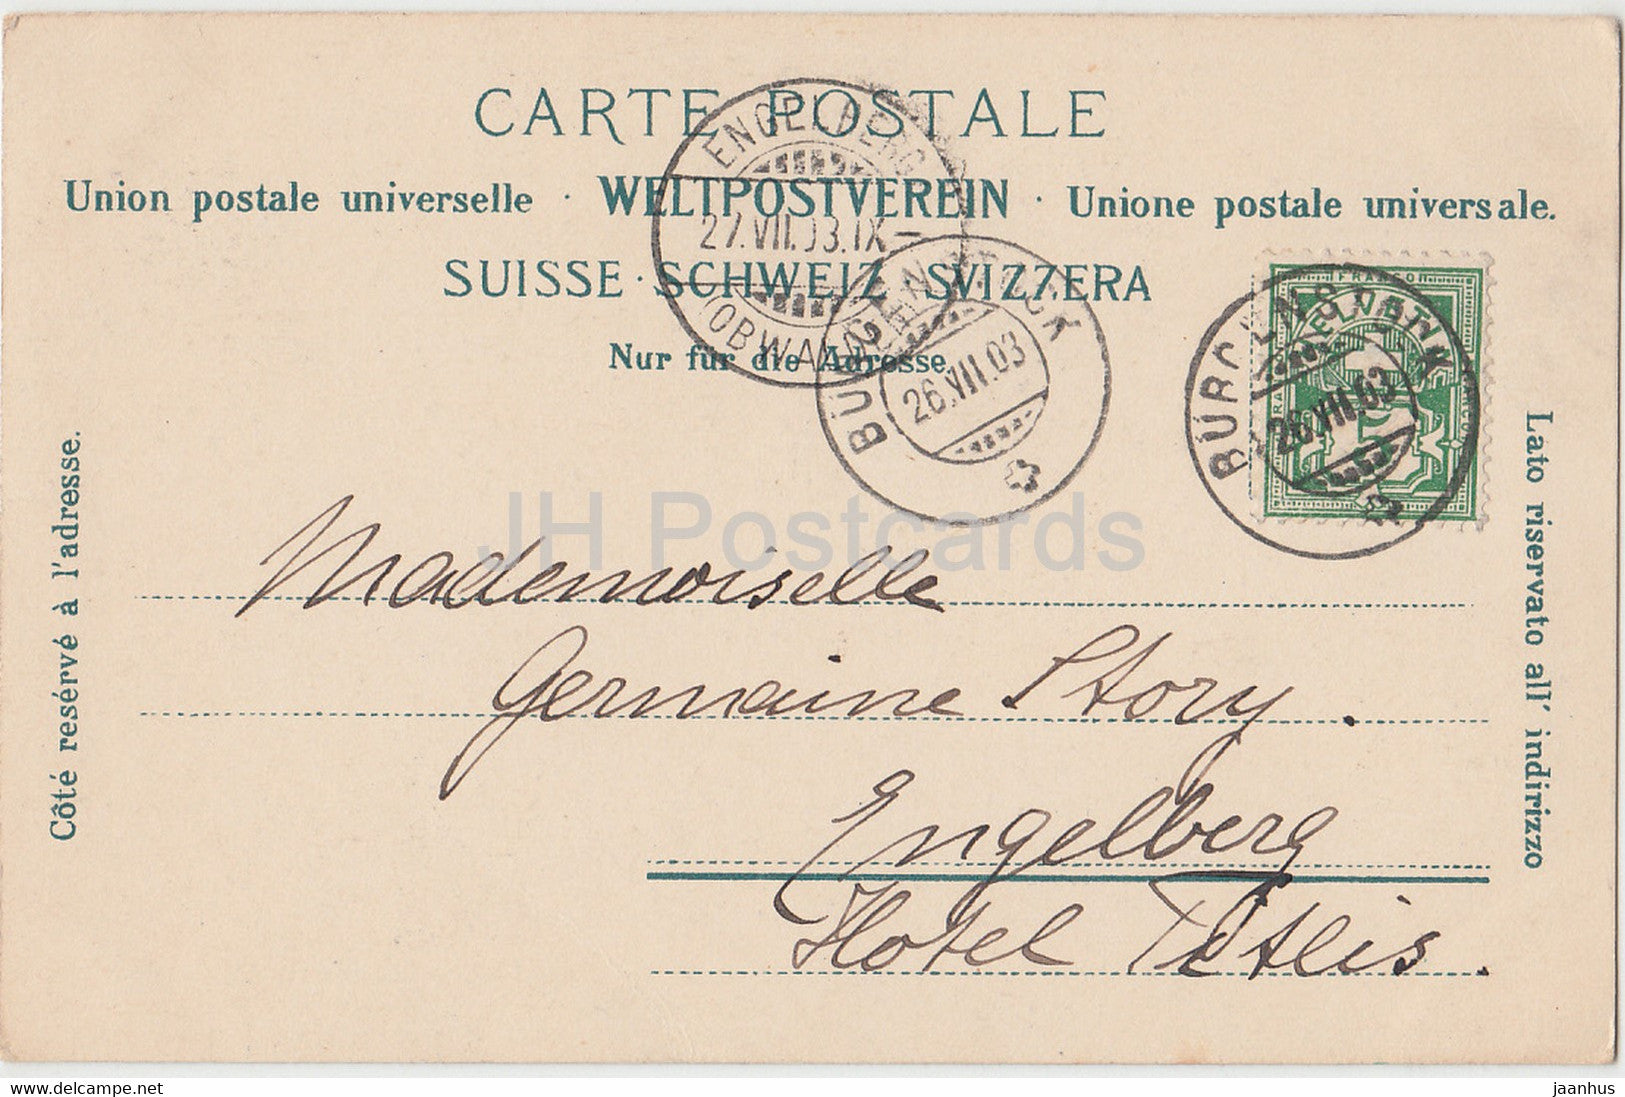 CARTE POSTALE
Union postale universelle · WELTPOSTVEREIN · Unione postale universale.
SUISSE · SCHWEIZ SVIZZERA
Nur für die Adresse.
ENGELBERG
27.VII.03.IX–
(OBWALDEN)
BÜRGENSTOCK
26.VII.03
BÜRGENSTOCK
26.VII.03
FRANCO
HELVETIA
Côté resérvé à l'adresse.
Lato riservato all' indirizzo
Mademoiselle
Germaine Story.
Engelberg
Hotel Titlis.
JH Postcards
delcampe.net
jaanhus